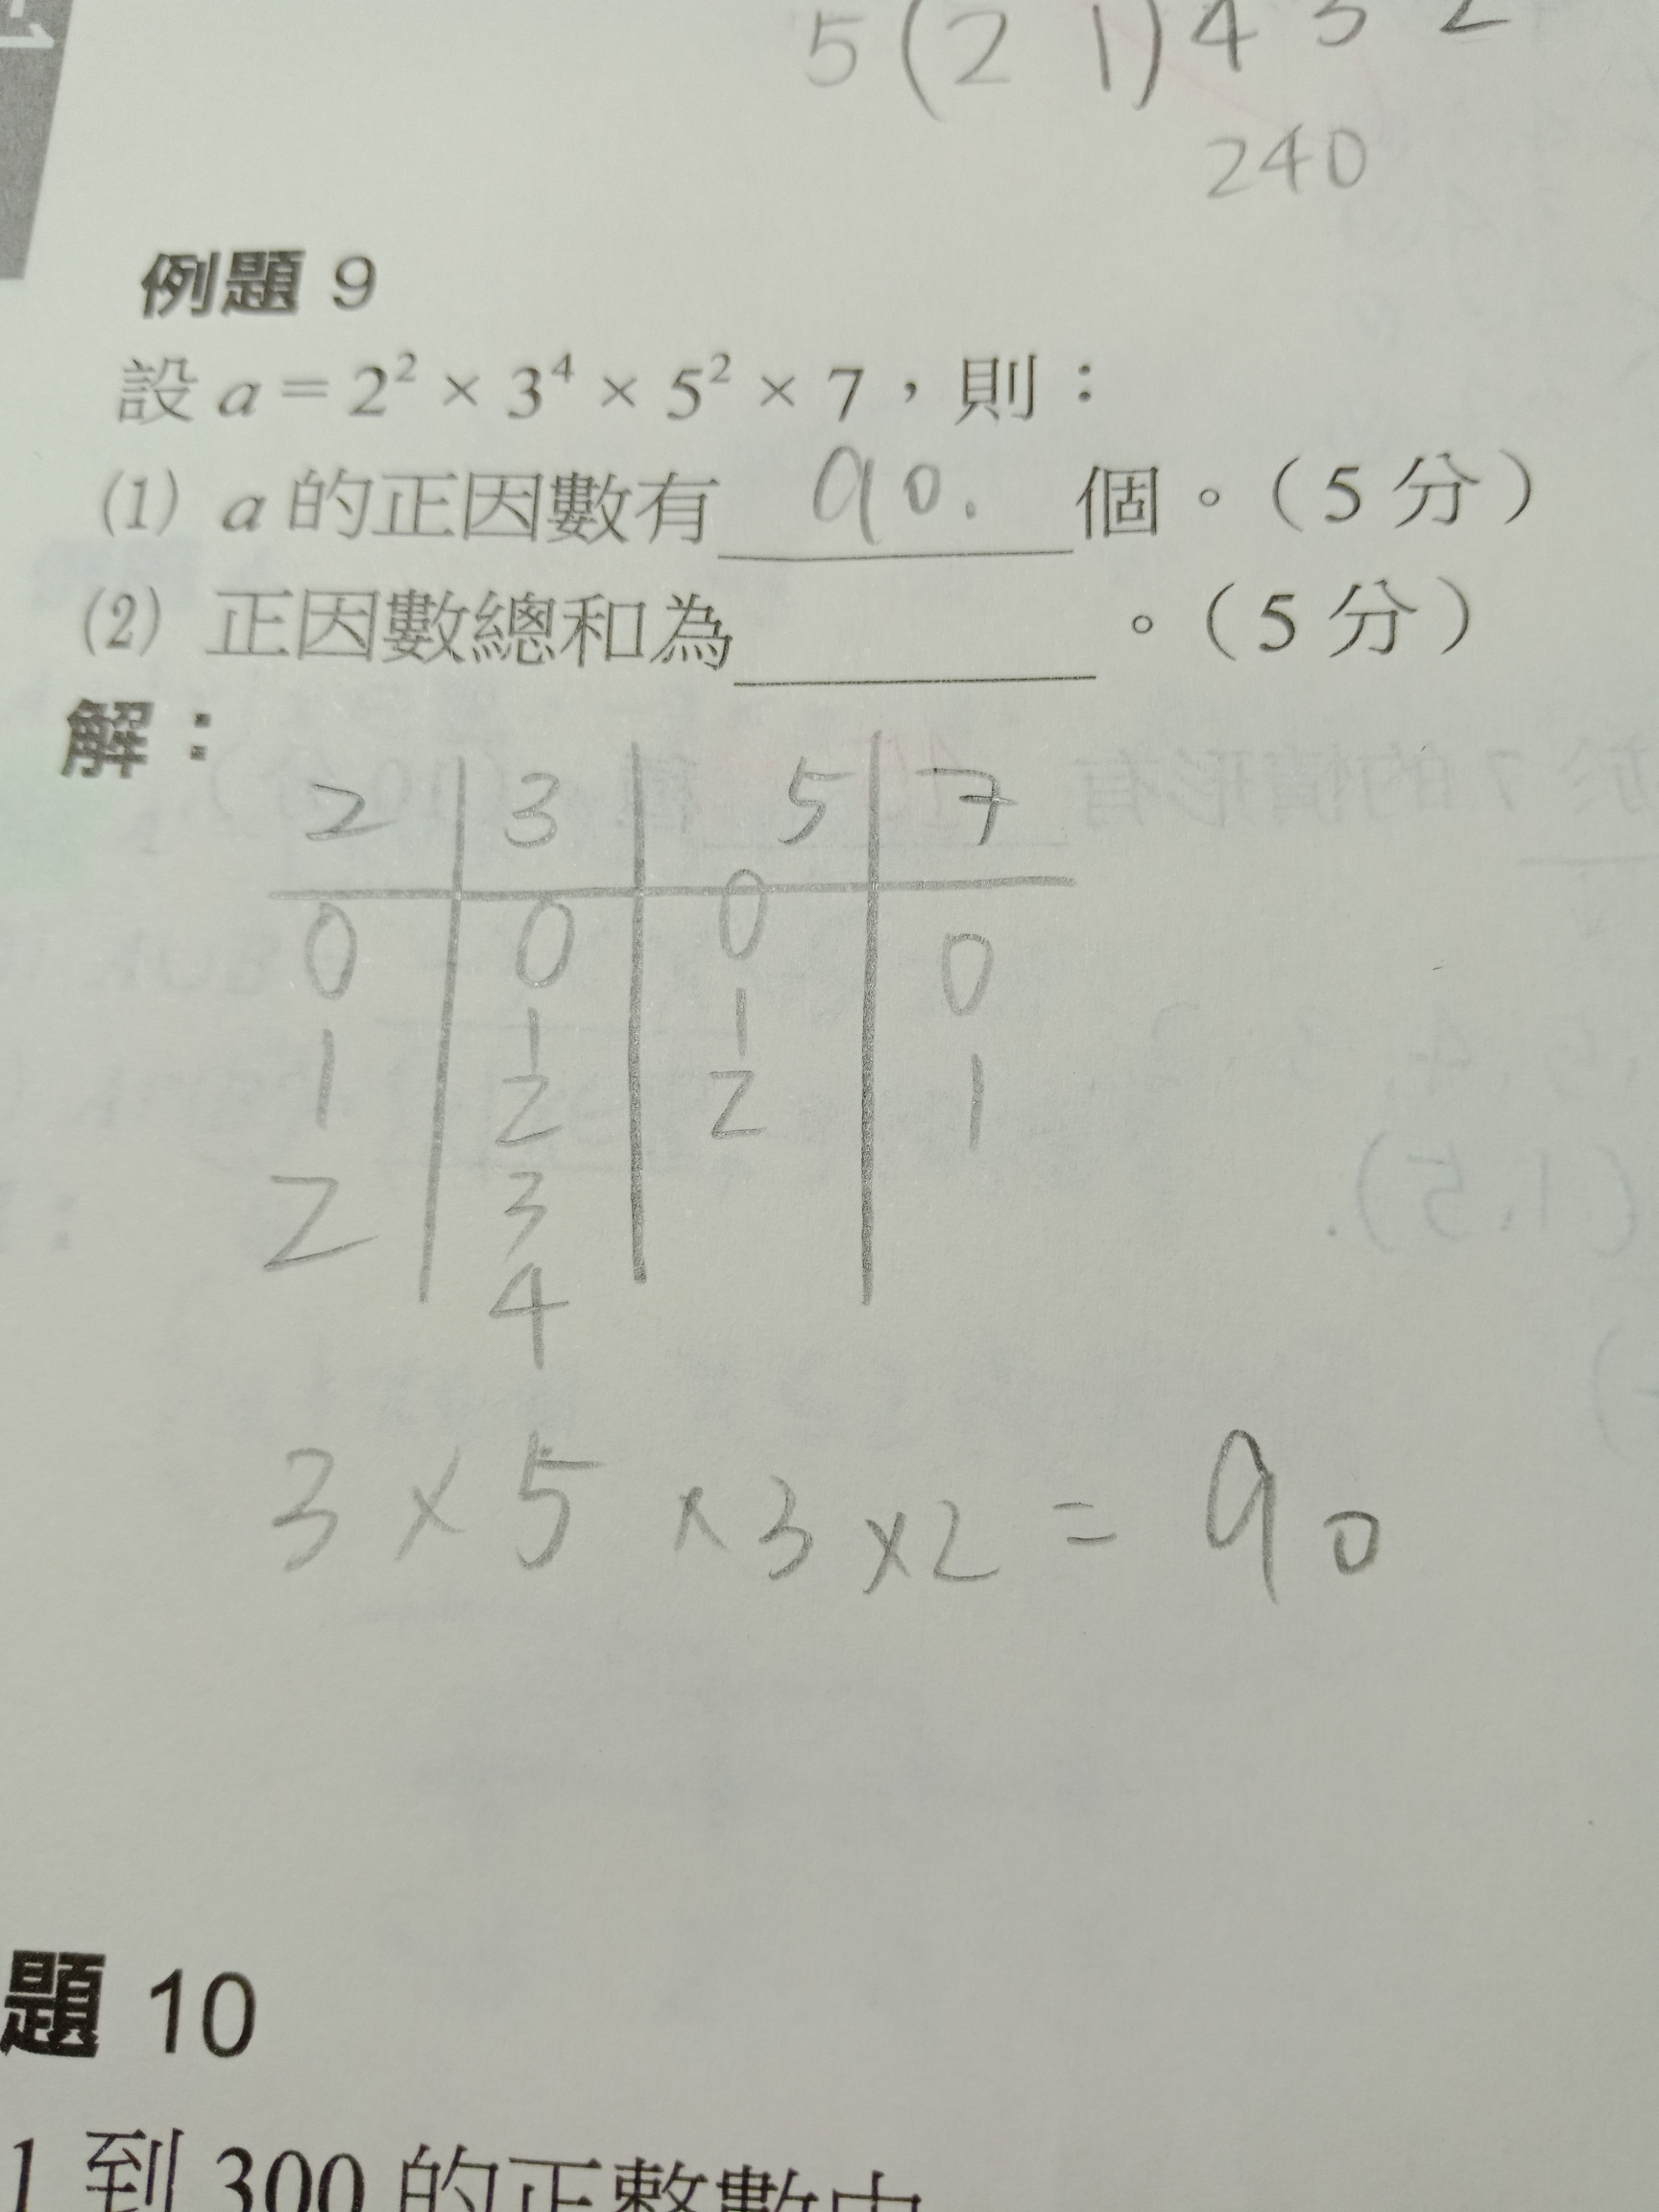 -1
5 (2 1) 4 3 2
240
例題 9
設 a = 2² × 3⁴ × 5² × 7，則：
(1) a 的正因數有 90. 個。（5 分）
(2) 正因數總和為＿＿＿＿。（5 分）
解：
2 3 5 7
0 0 0 0
1 1 1 1
2 2 2
3
4
3 × 5 × 3 × 2 = 90
題 10
1 到 300 的正整數中